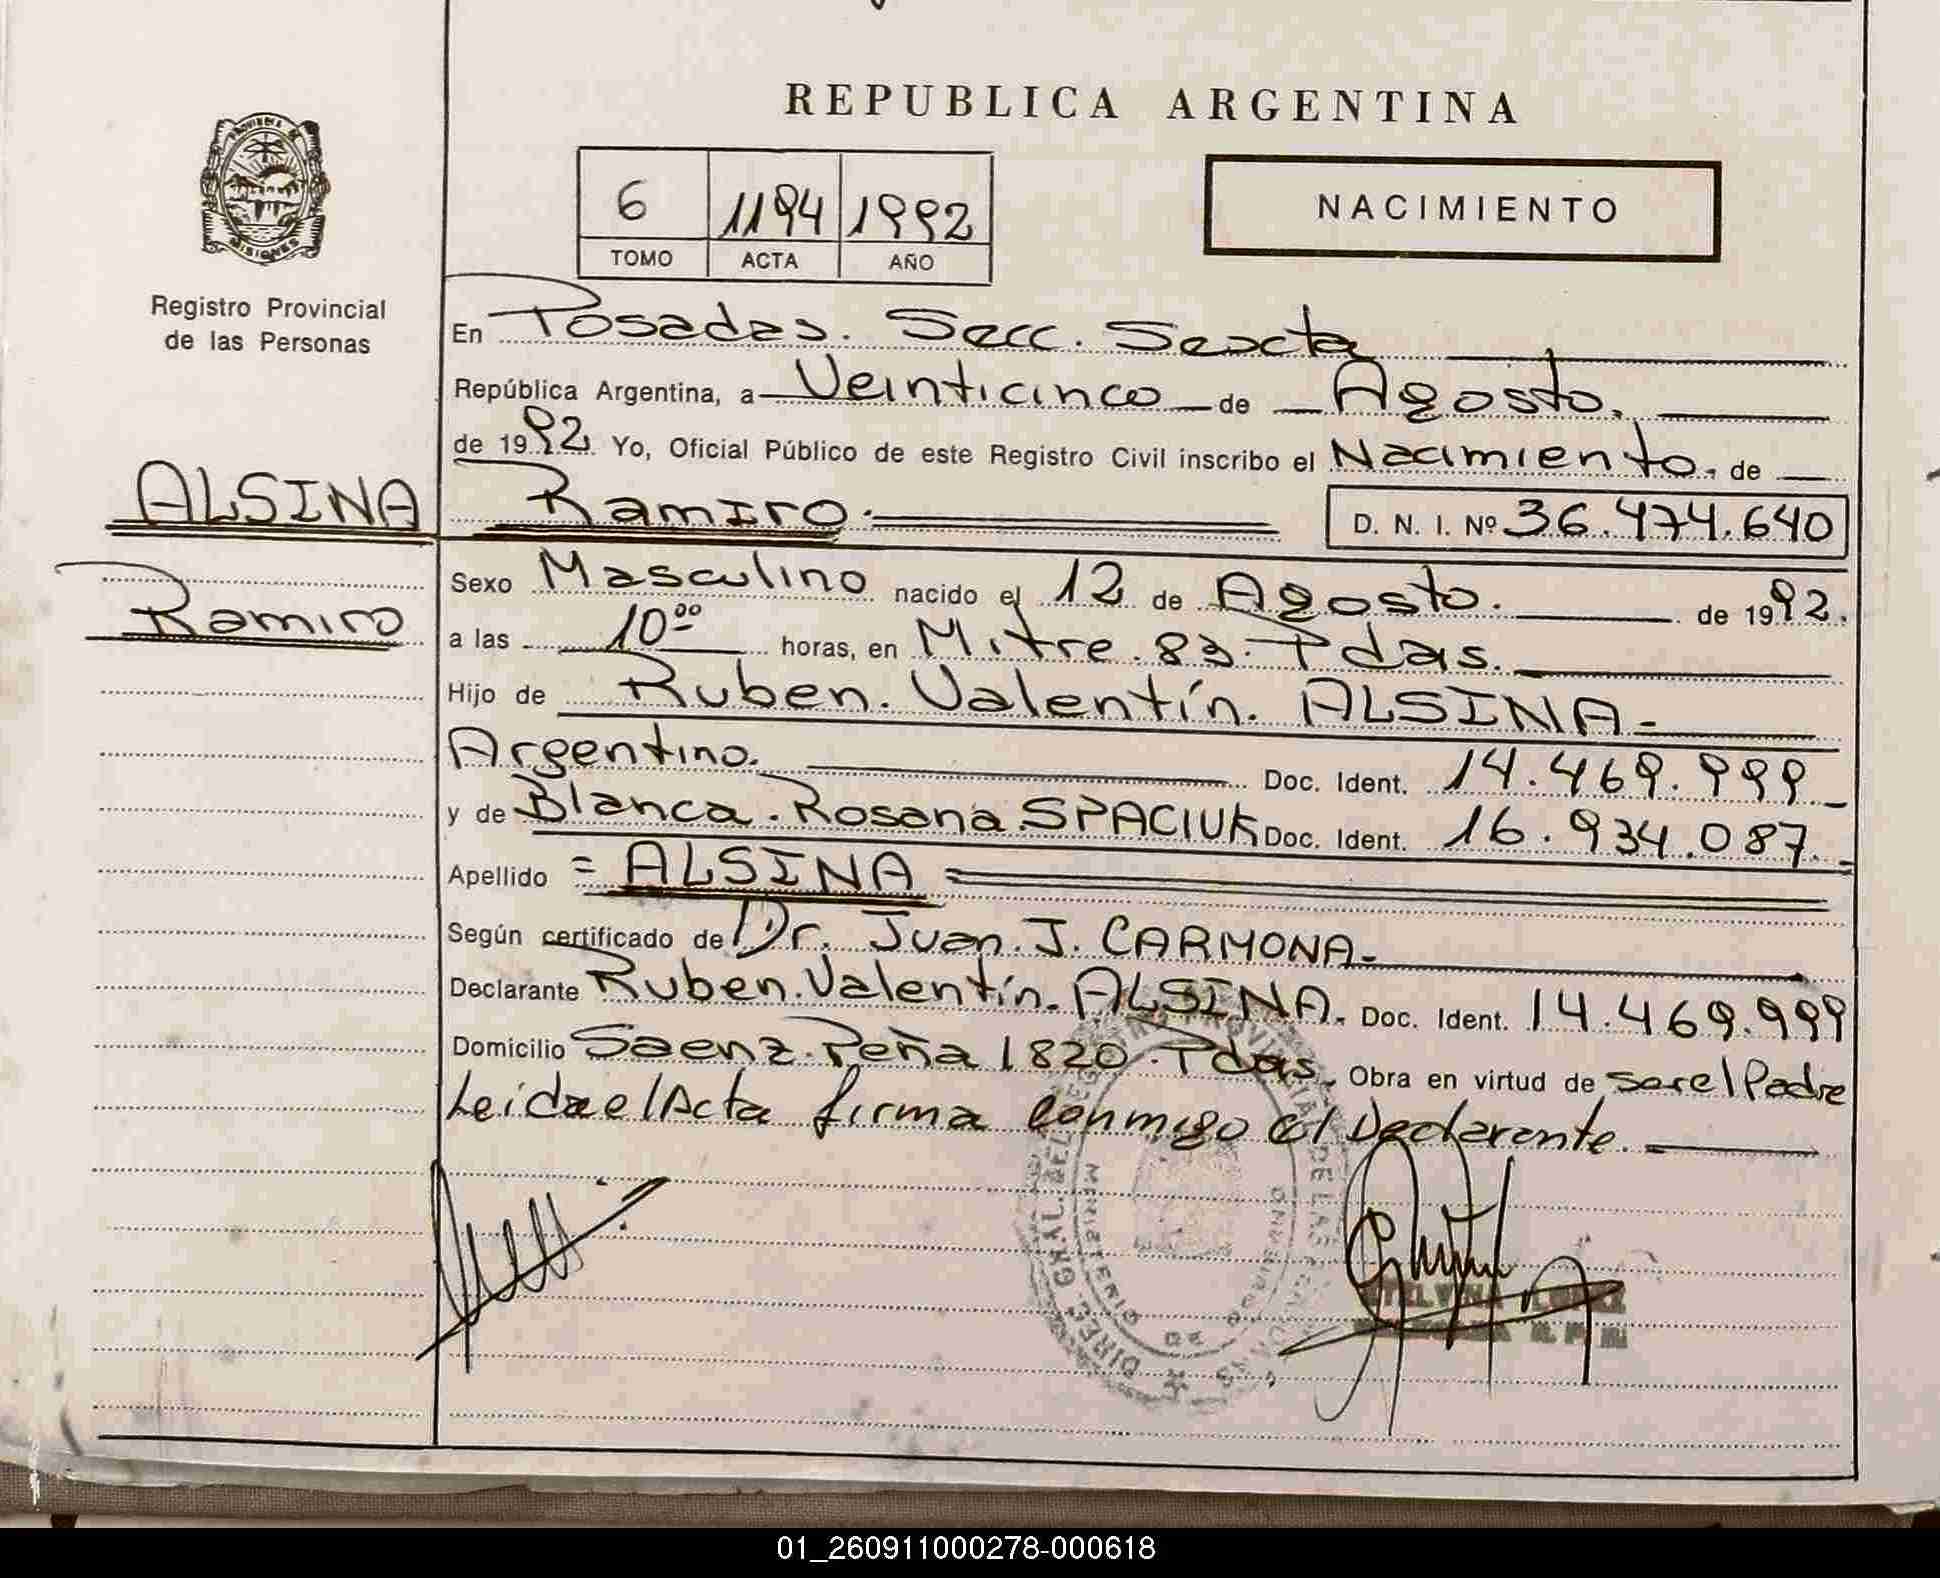 REPUBLICA ARGENTINA
PROVINCIA DE
MISIONES
Registro Provincial
de las Personas
6 1194 1992
TOMO ACTA AÑO
NACIMIENTO
En Posadas. Secc. Sexta
República Argentina, a Veinticinco de Agosto.
de 1992. Yo, Oficial Público de este Registro Civil inscribo el Nacimiento. de
ALSINA
Ramiro
Ramiro.
D. N. I. Nº 36.474.640
Sexo Masculino nacido el 12 de Agosto. de 1992.
a las 10⁰⁰ horas, en Mitre 83. Pdas.
Hijo de Ruben. Valentín. ALSINA-
Argentino. Doc. Ident. 14.469.999
y de Blanca. Rosana. SPACIUK Doc. Ident. 16.934.087.
Apellido = ALSINA
Según certificado de Dr. Juan. J. CARMONA-
Declarante Ruben. Valentín. ALSINA. Doc. Ident. 14.469.999
Domicilio Saenz. Peña 1820. Pdas. Obra en virtud de ser el Padre
Leida el Acta firma conmigo el Declarante.
MINISTERIO DE
01_260911000278-000618